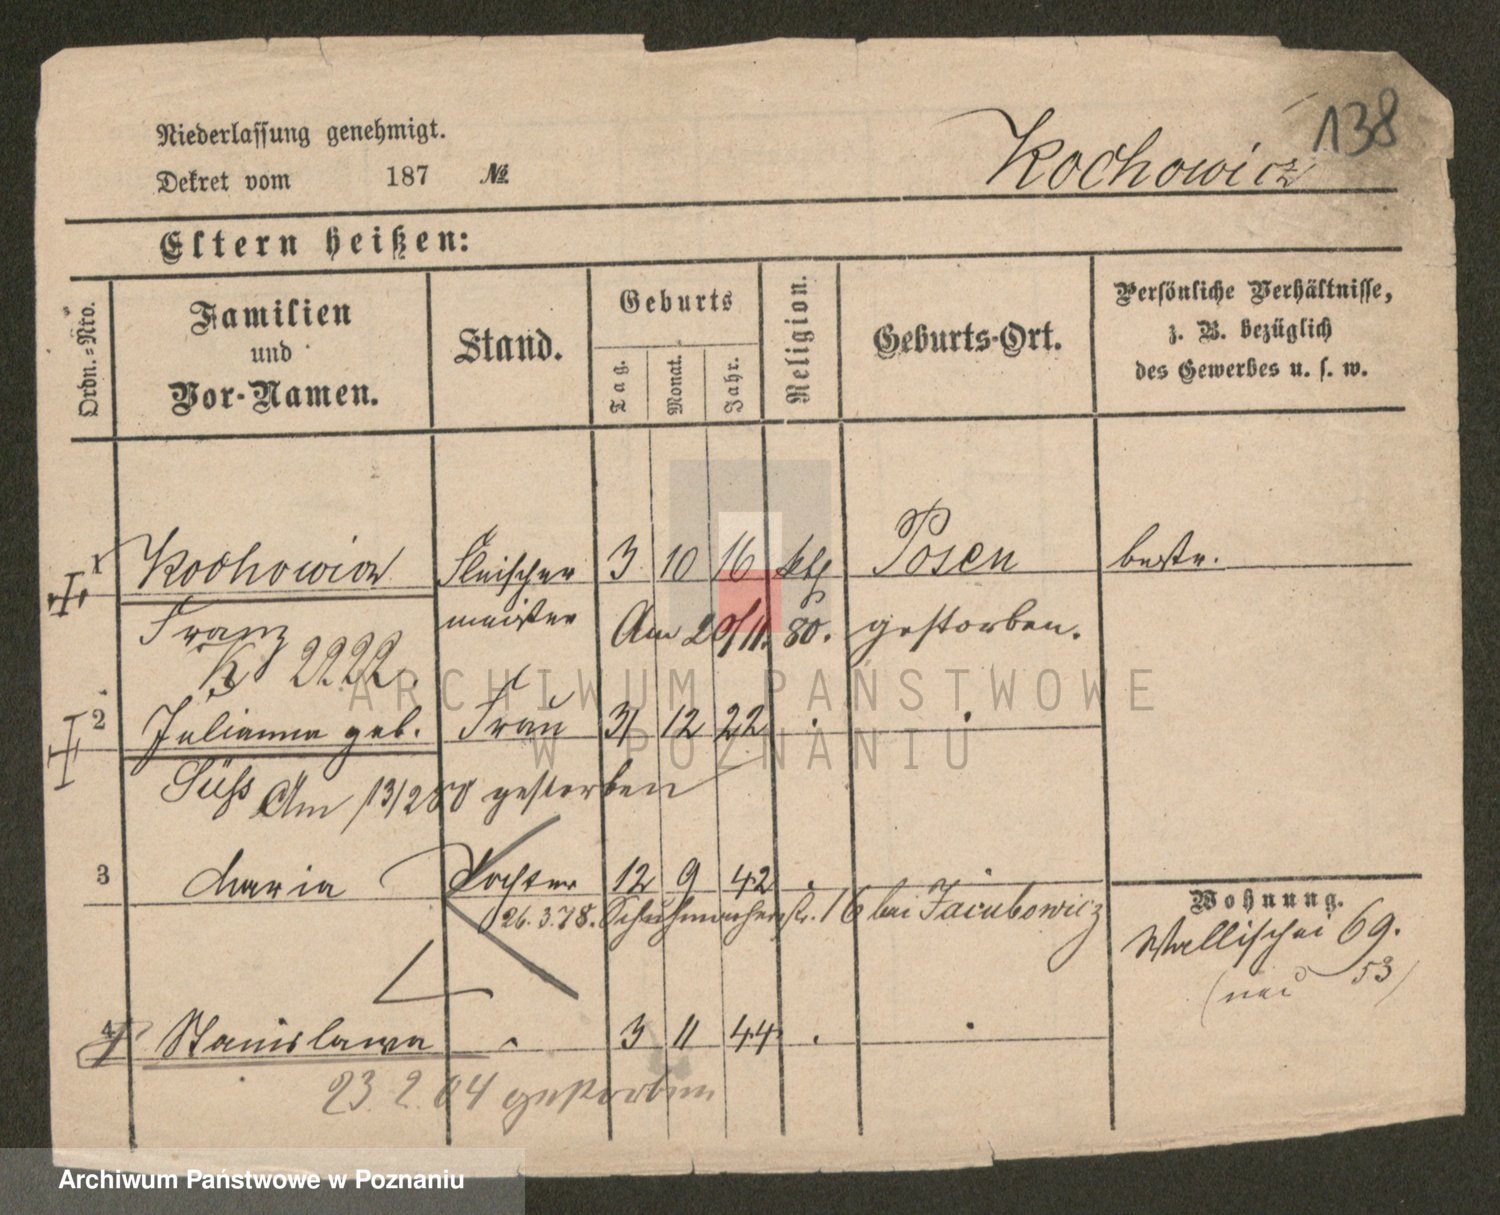 138
Niederlassung genehmigt.
Kochowicz
Dekret vom 187 №
Eltern heißen:
Ordn.-Nro.
Familien und Vor-Namen.
Stand.
Geburts
Tag.
Monat.
Jahr.
Religion.
Geburts-Ort.
Persönliche Verhältnisse,
z. B. bezüglich
des Gewerbes u. s. w.
1 Kochowicz Fleischer 3 10 16 kth Posen bestr.
Franz meister Am 20/11. 80. gestorben.
K 2222.
2 Julianna geb. Frau 31 12 22 . .
Süss Am 13/2 80 gestorben
3 Maria Tochter 12 9 42 . .
26.3.78. Schuhmacherstr. 16 bei Jacubowicz
Wohnung.
Wallischei 69.
(neu 53)
4 Stanislawa . 3 11 44 . .
23.2.04 gestorben
ARCHIWUM PAŃSTWOWE
W POZNANIU
Archiwum Państwowe w Poznaniu